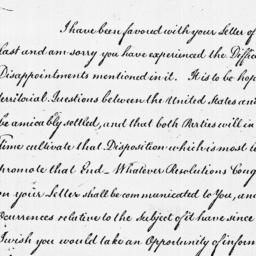 I have been favored with your Letter of
last and am sorry you have experienced the Diffic
Disappointments mentioned in it. It is to be hop
Territorial Questions between the United States an
be amicably settled, and that both Parties will in
Time cultivate that Disposition which is most l
promote that End_ Whatever Resolutions Cong
on your Letter shall be communicated to You, an
Occurrences relative to the Subject of it have since
I wish you would take an Opportunity of inform